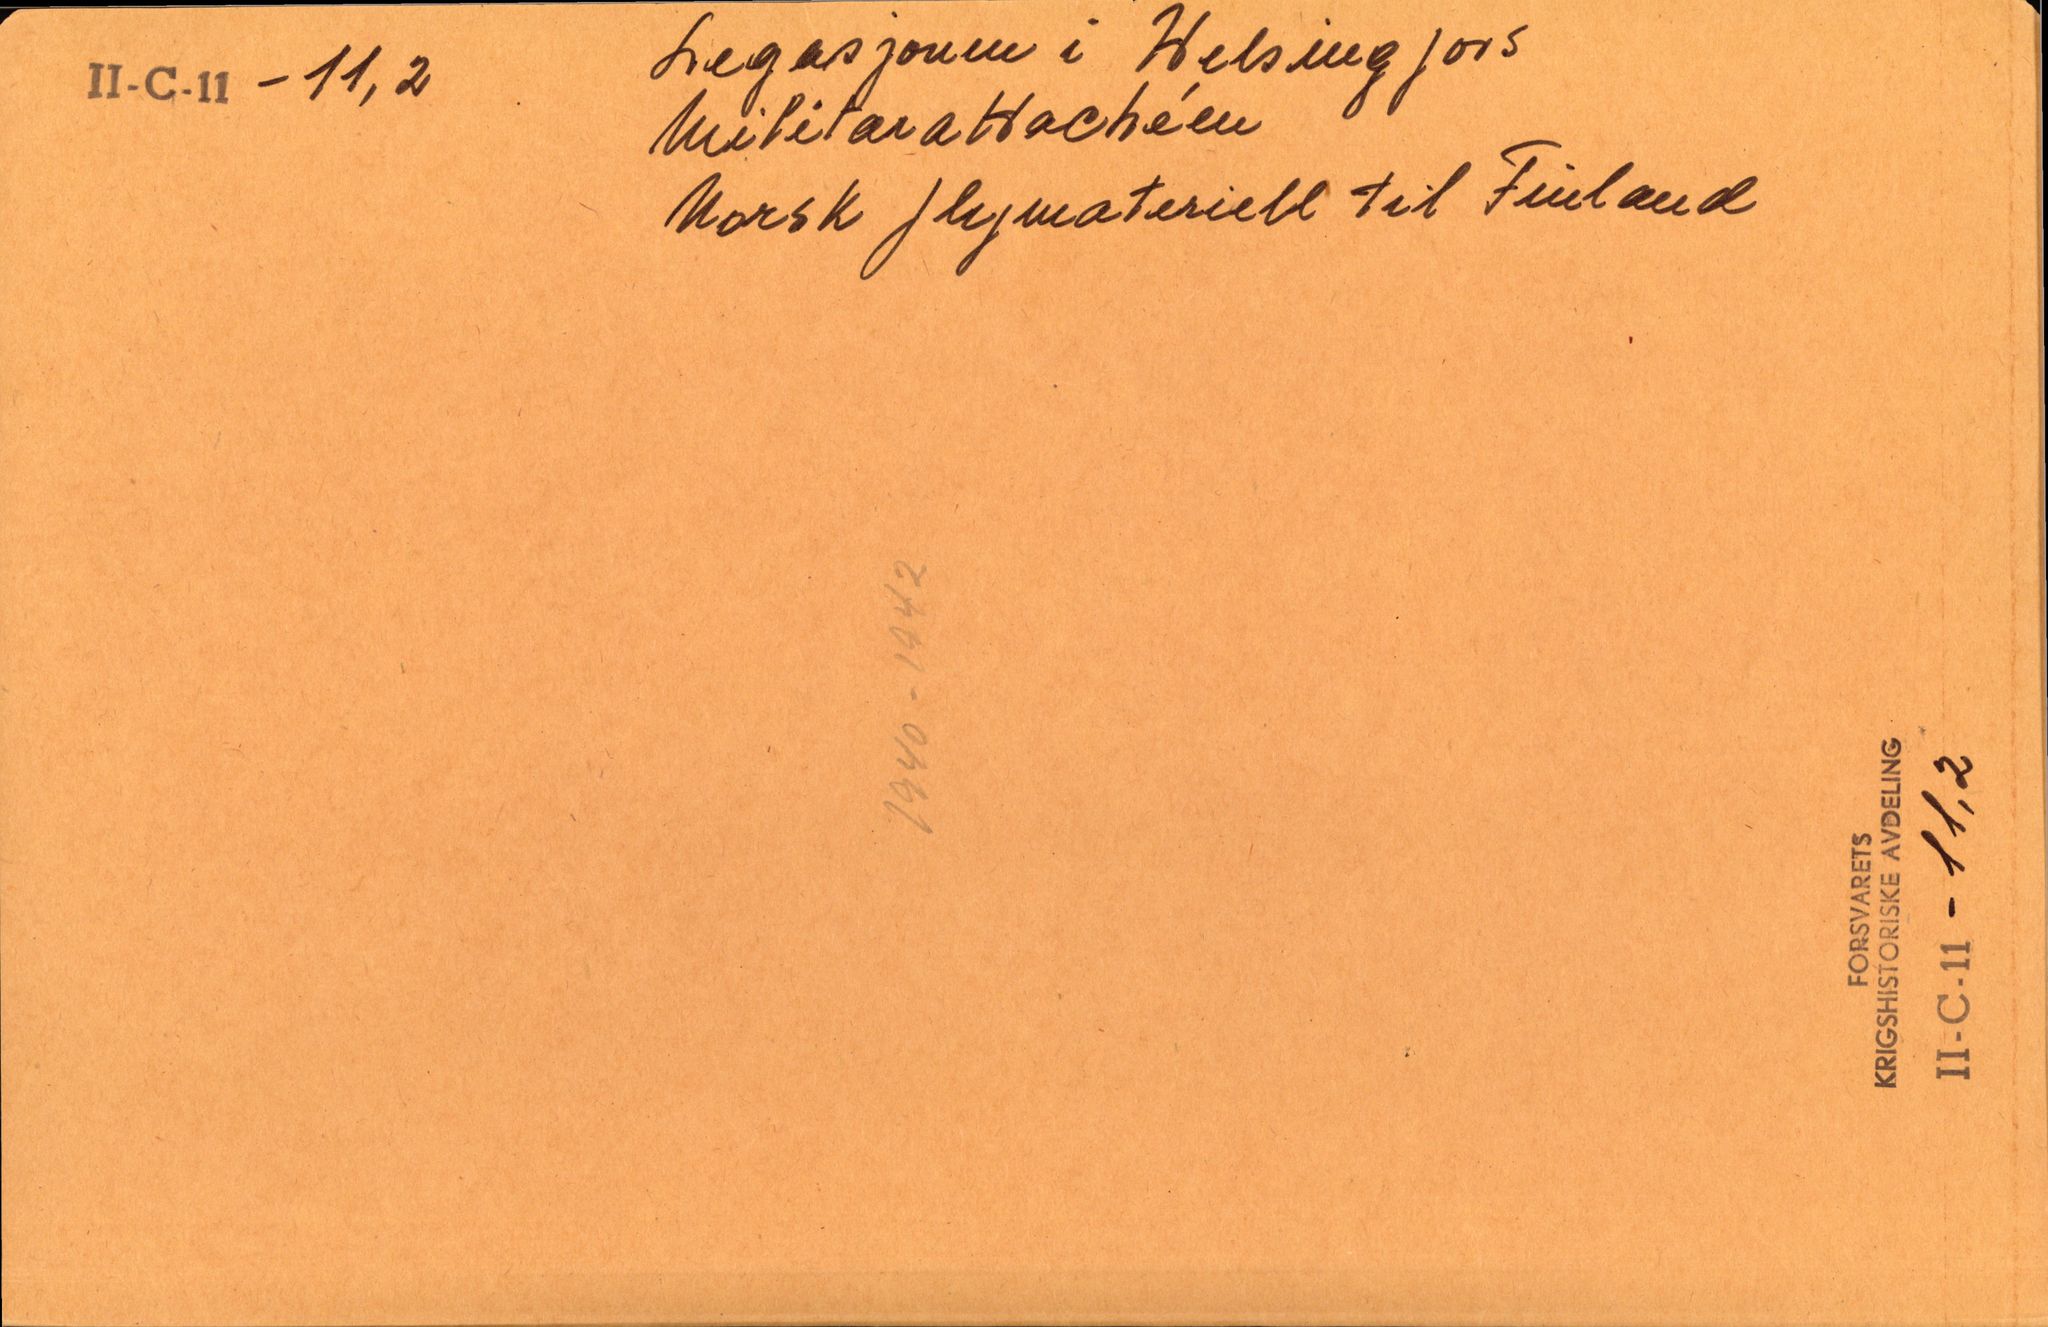 II-C-11 - 11,2
Legasjonen i Helsingfors
Militærattachéen
Norsk flymateriell til Finland
1940-1942
FORSVARETS
KRIGSHISTORISKE AVDELING
II-C-11 - 11,2